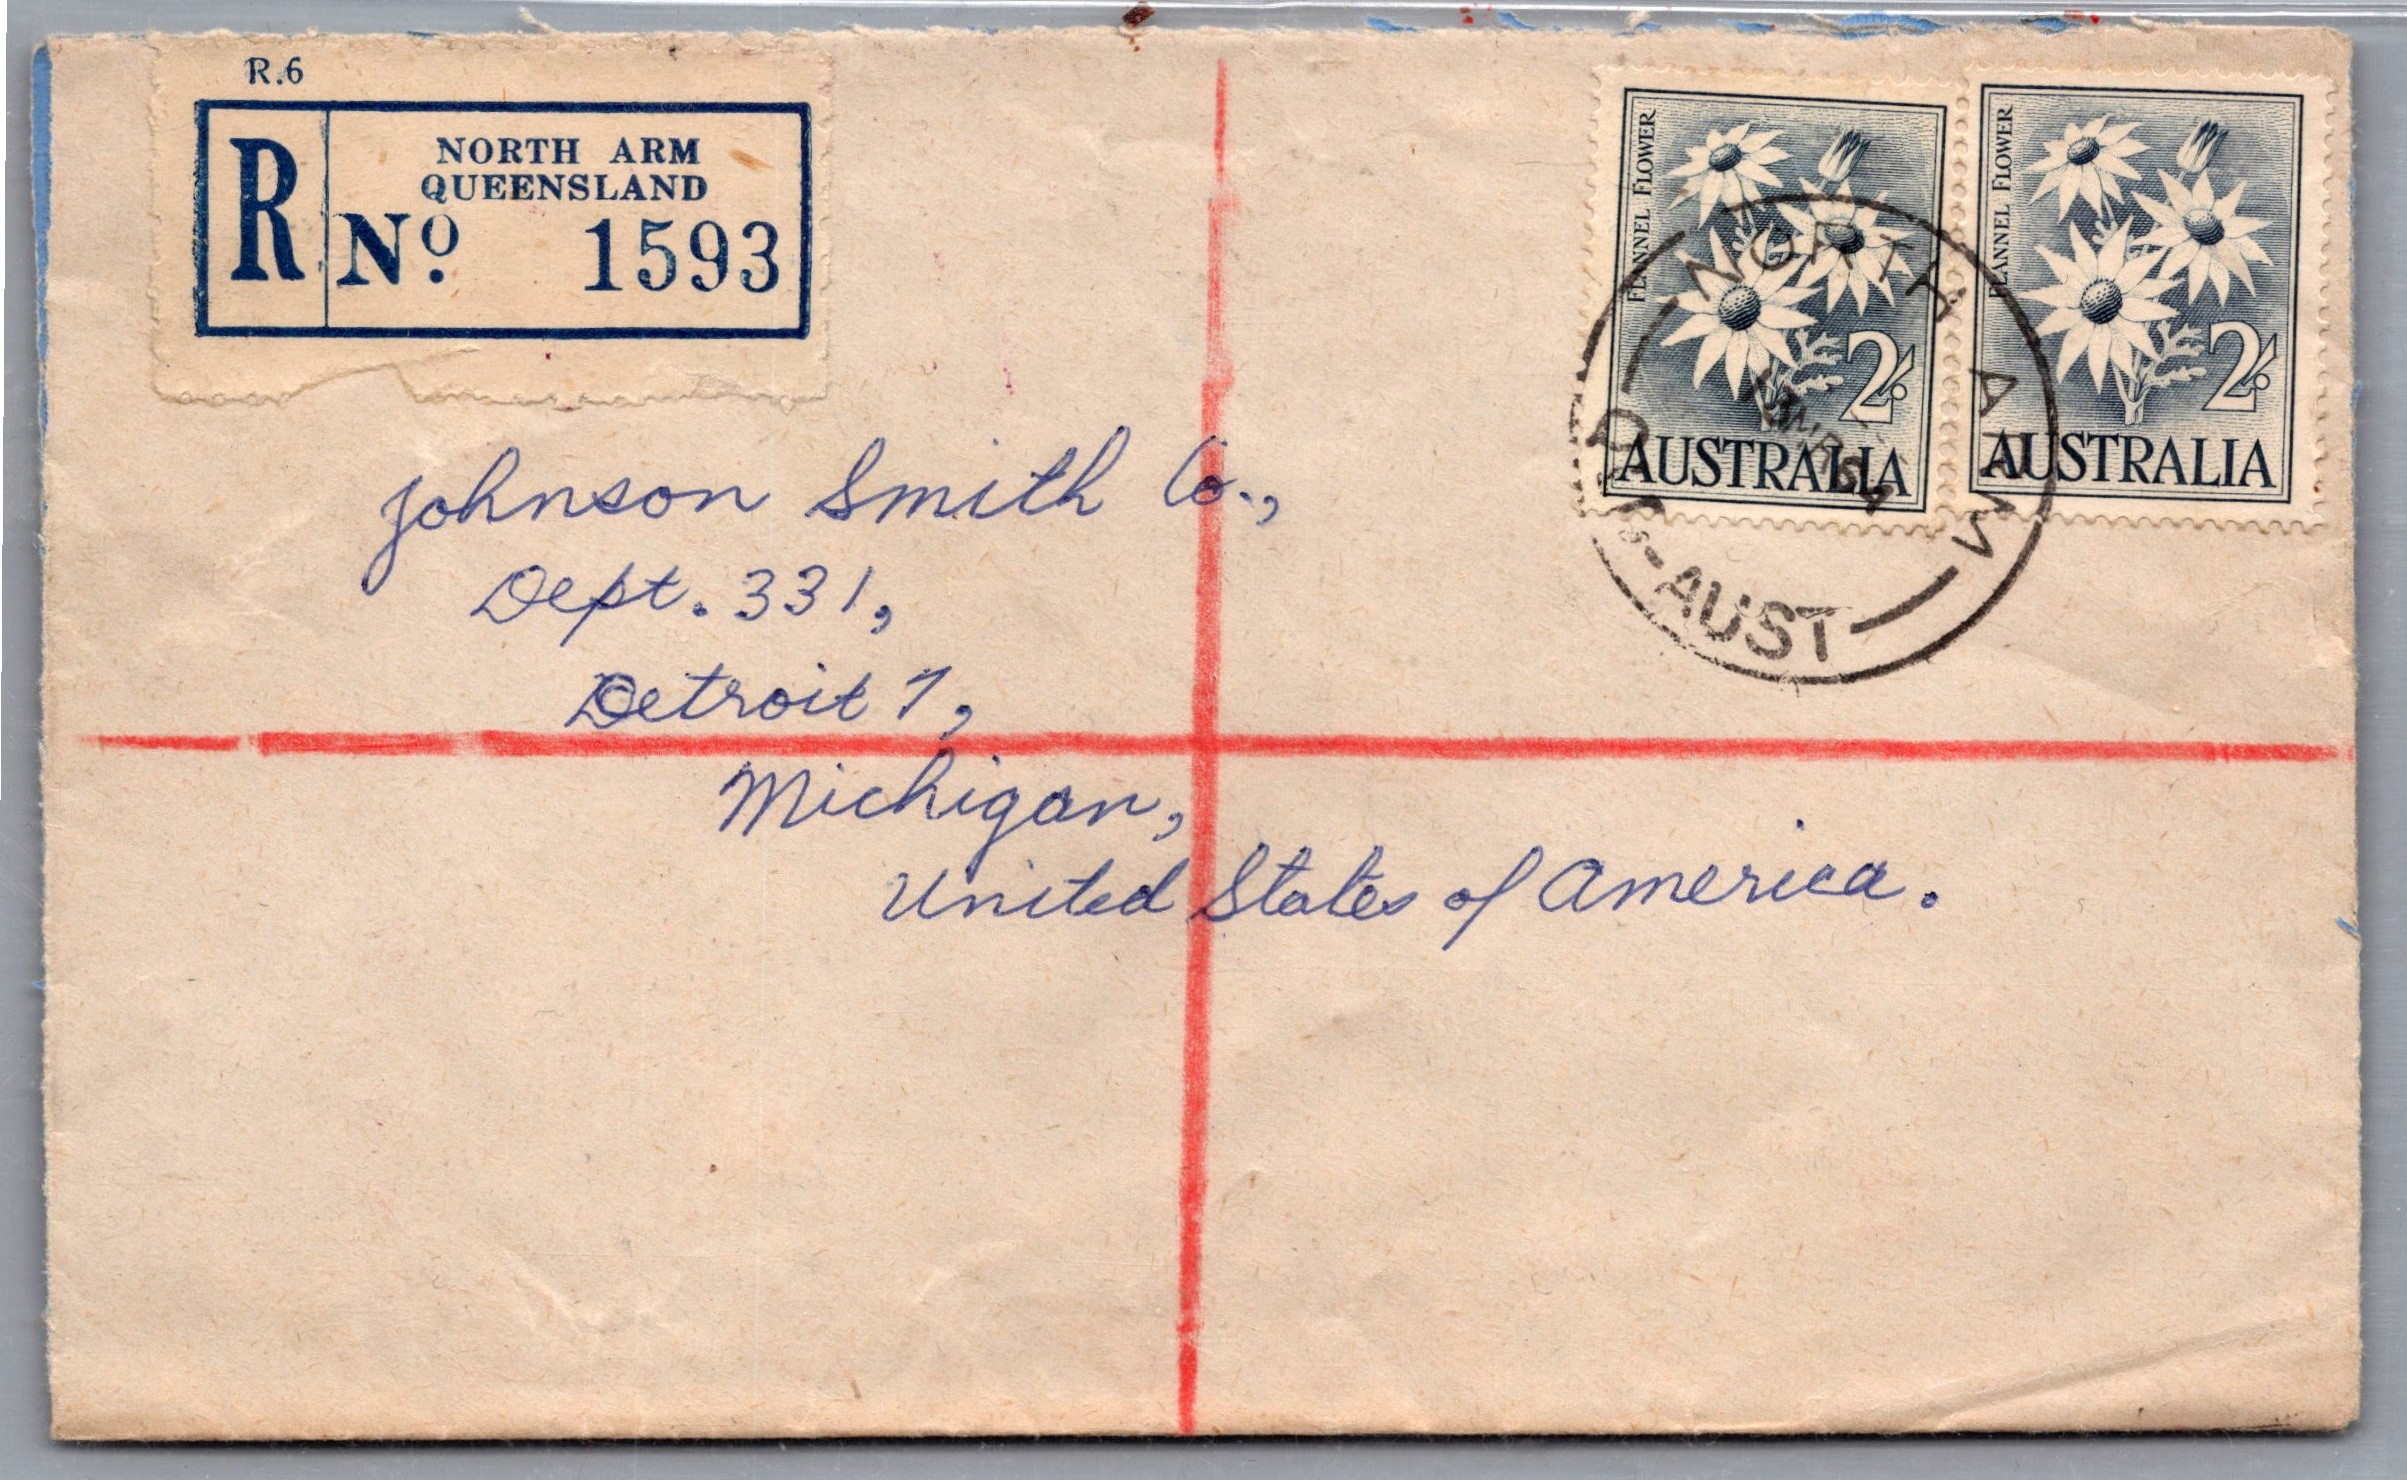 R.6
R
NORTH ARM
QUEENSLAND
No. 1593
FLANNEL FLOWER
2/-
AUSTRALIA
FLANNEL FLOWER
2/-
AUSTRALIA
NORTH ARM
QLD-AUST
Johnson Smith Co.,
Dept. 331,
Detroit 7,
Michigan,
United States of America.